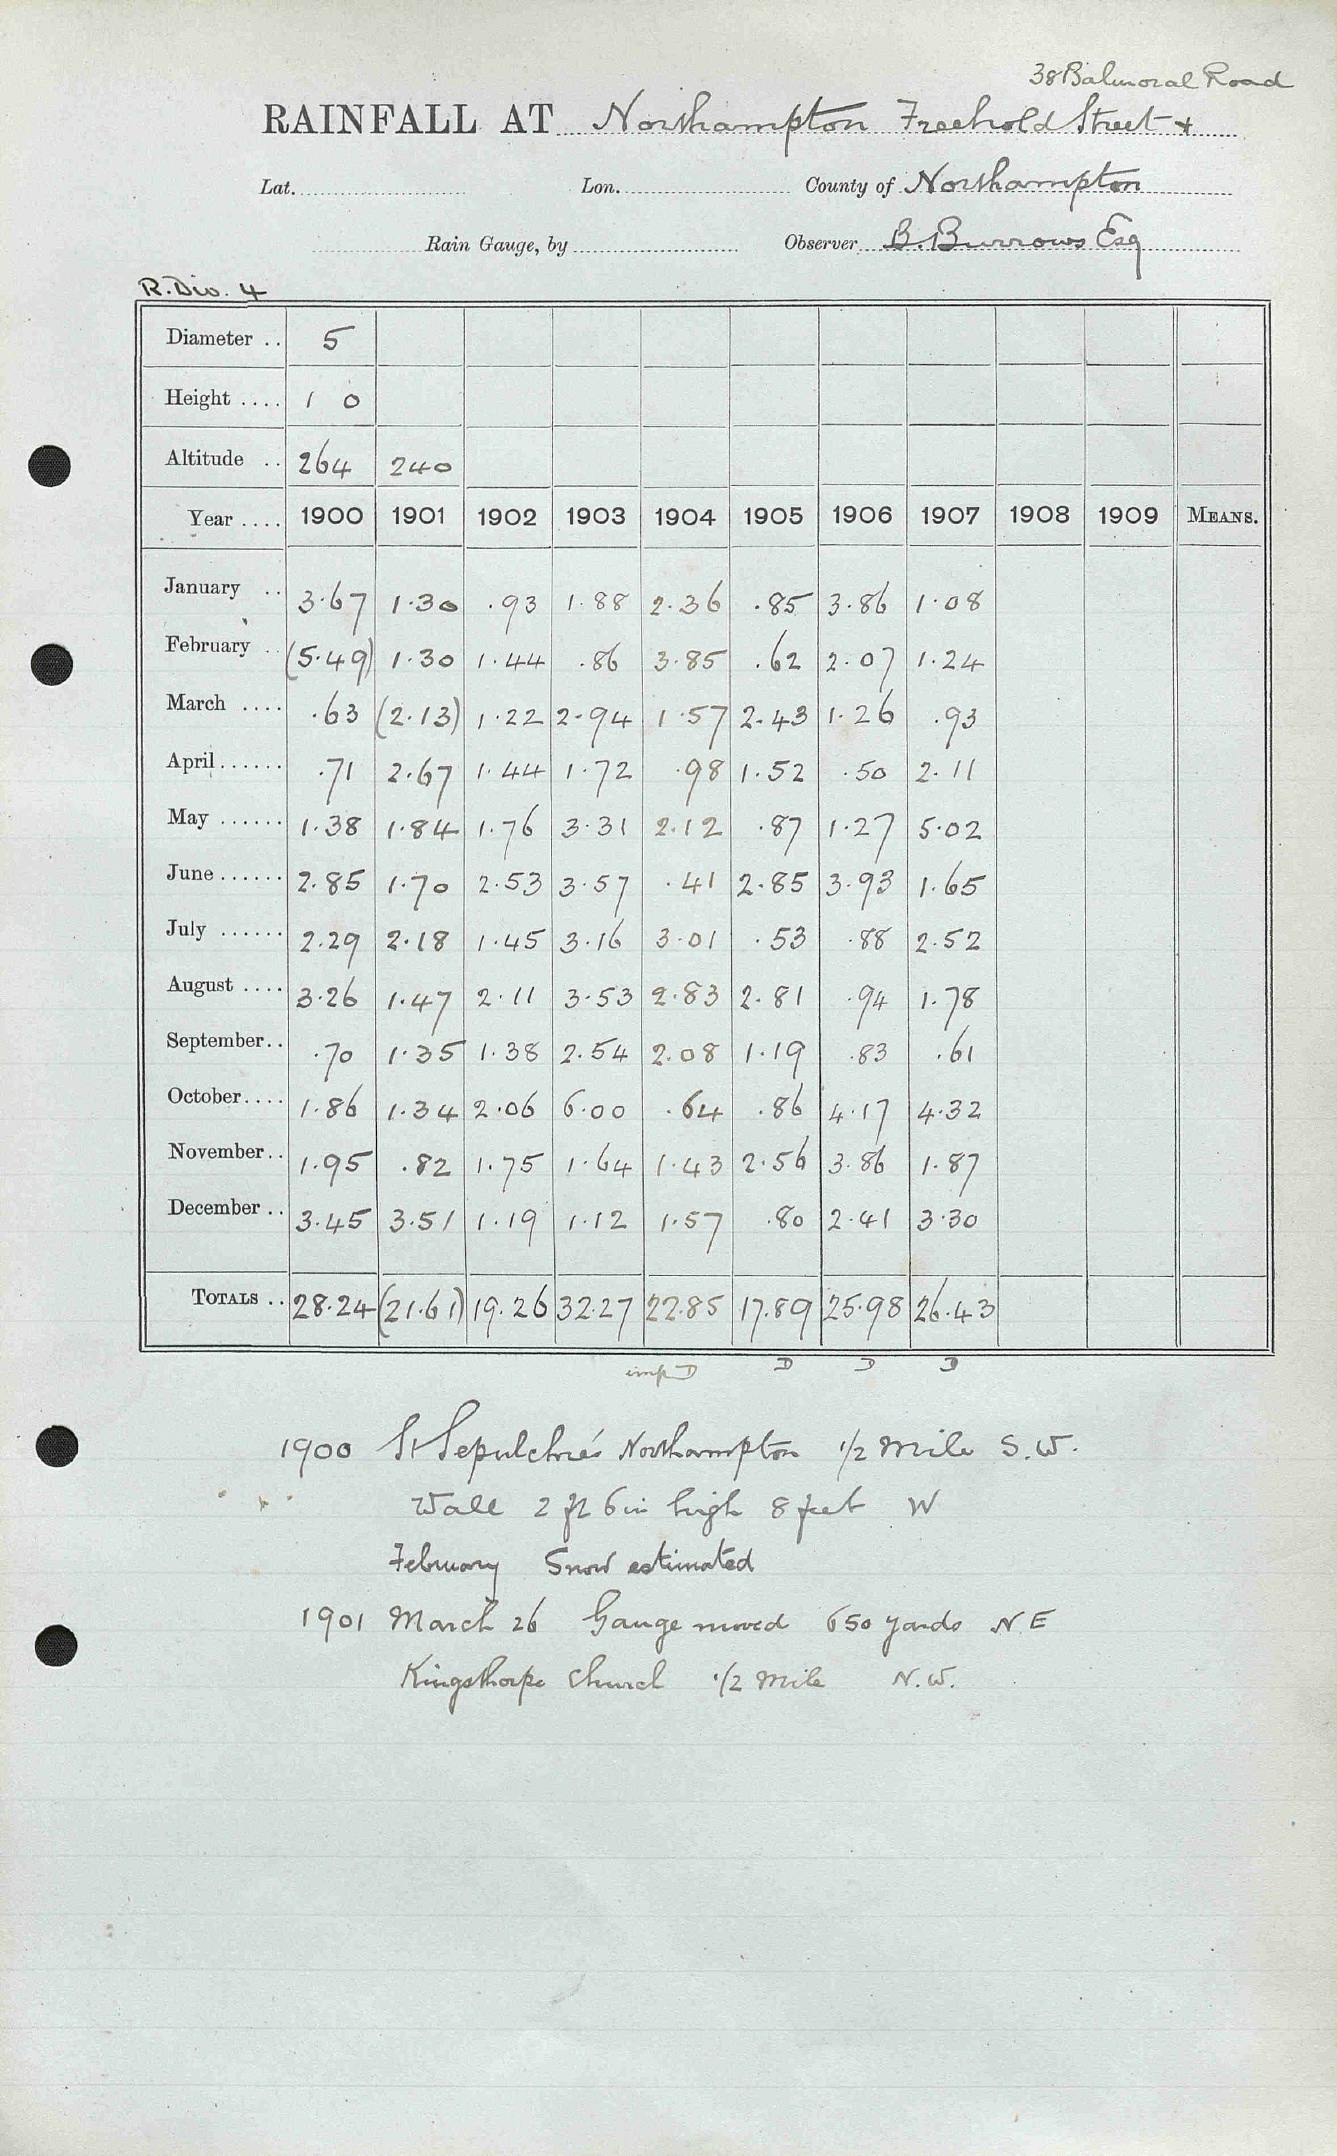 38 Balmoral Road
RAINFALL AT Northampton Freehold Street +
Lat. Lon. County of Northampton
Rain Gauge, by Observer B. Burrows Esq
R. Div. 4
Diameter .. 5
Height .... 1 0
Altitude .. 264 240
Year .... 1900 1901 1902 1903 1904 1905 1906 1907 1908 1909 MEANS.
January .. 3.67 1.30 .93 1.88 2.36 .85 3.86 1.08
February .. (5.49) 1.30 1.44 .86 3.85 .62 2.07 1.24
March .... .63 (2.13) 1.22 2.94 1.57 2.43 1.26 .93
April ...... .71 2.67 1.44 1.72 .98 1.52 .50 2.11
May ...... 1.38 1.84 1.76 3.31 2.12 .87 1.27 5.02
June ...... 2.85 1.70 2.53 3.57 .41 2.85 3.93 1.65
July ...... 2.29 2.18 1.45 3.16 3.01 .53 .88 2.52
August .... 3.26 1.47 2.11 3.53 2.83 2.81 .94 1.78
September.. .70 1.35 1.38 2.54 2.08 1.19 .83 .61
October.... 1.86 1.34 2.06 6.00 .64 .86 4.17 4.32
November.. 1.95 .82 1.75 1.64 1.43 2.56 3.86 1.87
December .. 3.45 3.51 1.19 1.12 1.57 .80 2.41 3.30
TOTALS .. 28.24 (21.61) 19.26 32.27 22.85 17.89 25.98 26.43
imp D D D D
1900 St Sepulchre's Northampton 1/2 Mile S.W.
Wall 2 ft 6 in high 8 feet W
February Snow estimated
1901 March 26 Gauge moved 650 yards N E
Kingsthorpe Church 1/2 Mile N.W.